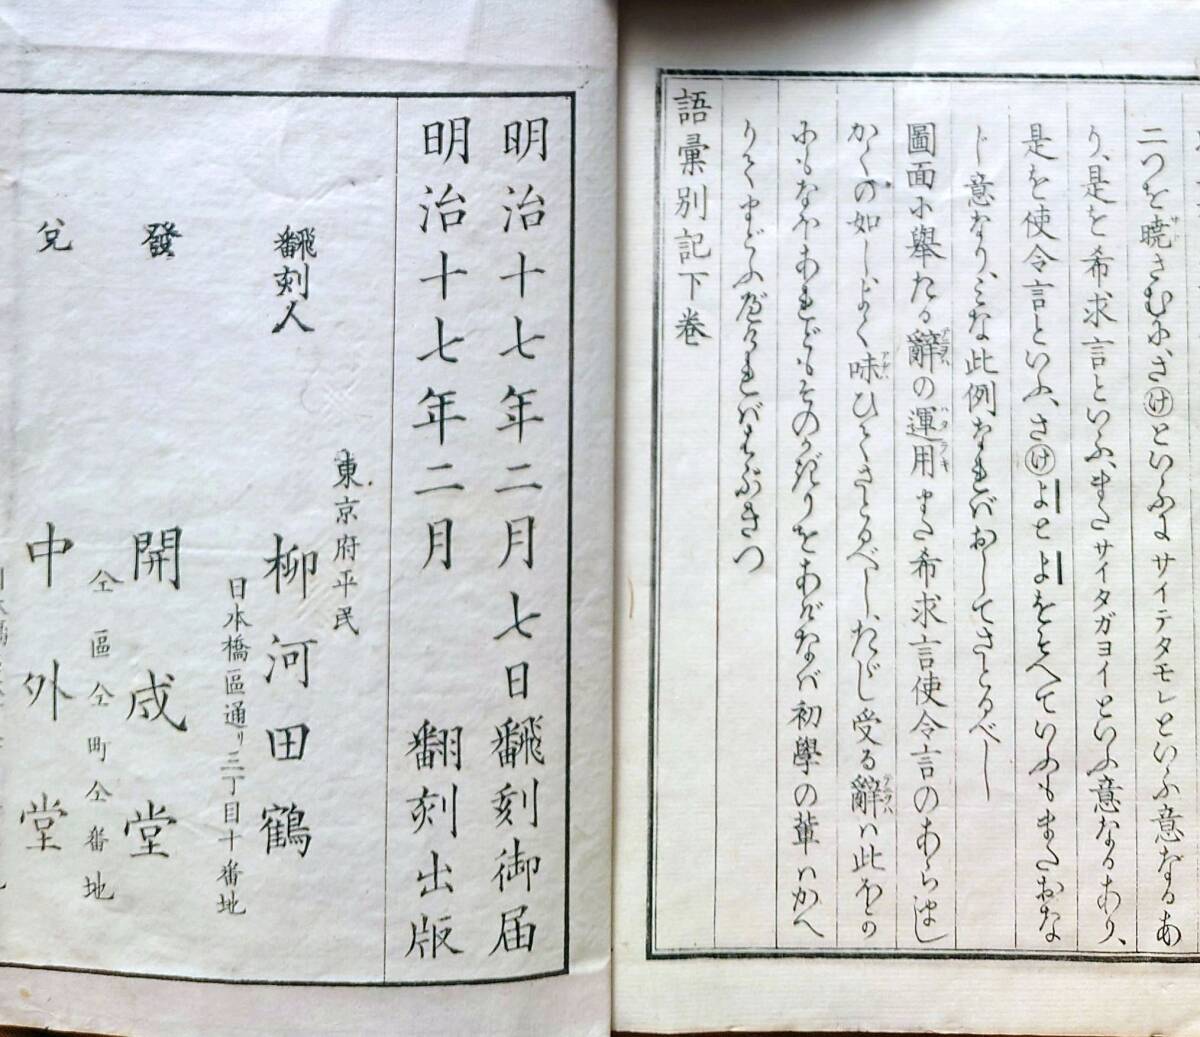 二つを暁さむに、さけといふはサイテタモレといふ意なるあ
り、是を希求言といふ、またサイタガヨイといふ意なるあり、
是を使令言といふ、さけよとよをそへていふもまたおな
じ意なり、みな此例なればおしてさとるべし
圖面に擧たる辭の運用また希求言使令言のあらまし
かくの如しよく味ひてさとるべし、たゞし受る辭は此ほどの
にもなほあれどもそのかぎりをあげなば初學の輩はかへ
りてまどふべければはぶきつ
語彙別記下巻
明治十七年二月七日飜刻御届
明治十七年二月 翻刻出版
東京府平民
飜刻人 柳河田鶴
日本橋區通リ三丁目十番地
發 開成堂
仝區仝町仝番地
兌 中外堂